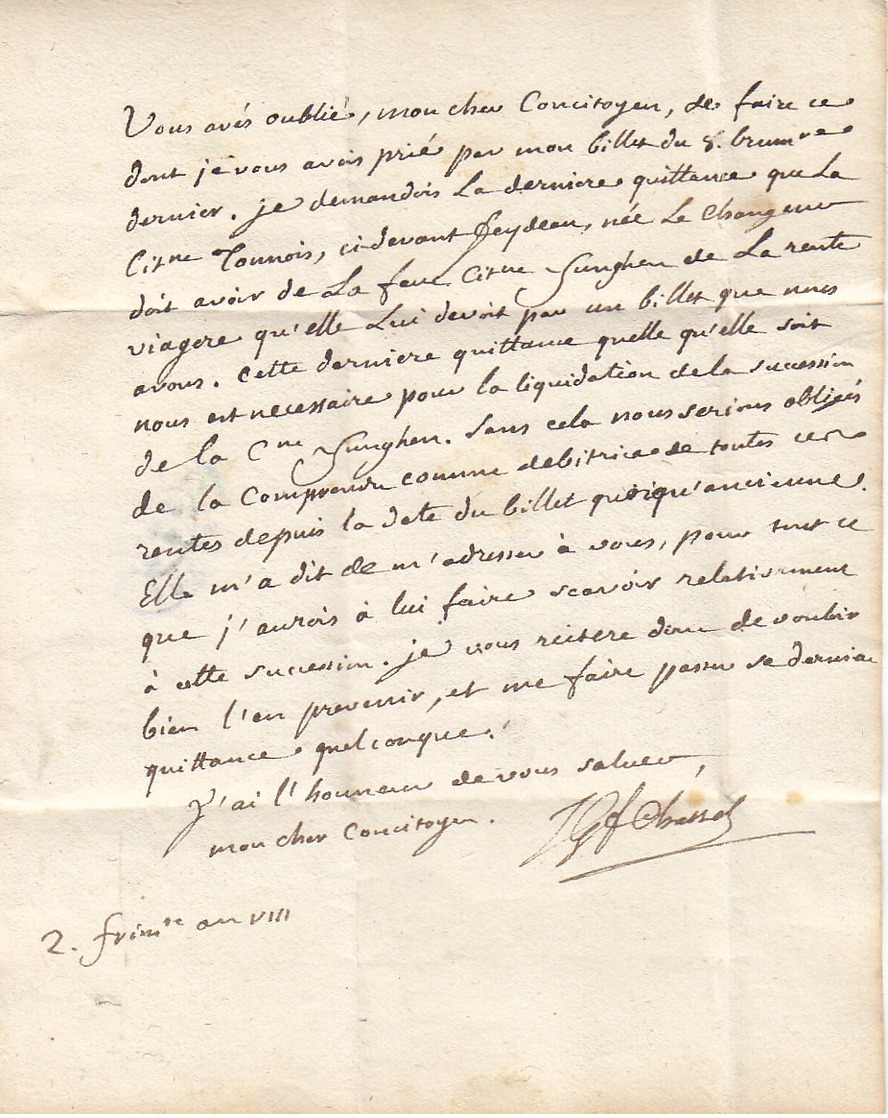 Vous avés oublié, mon cher Concitoyen, de faire ce
dont je vous avois prié par mon billet du 8. brumre
dernier. je demandois La derniere quittance que La
Citne Tonnois, ci-devant feydeau, née Le Changeur
doit avoir de La feue Citne Sunghen de La rente
viagere qu'elle Lui devoit par un billet que nous
avons. Cette derniere quittance quelle qu'elle soit
nous est necessaire pour la liquidation de la succession
de la Cne Sunghen. Sans cela nous serions obligés
de la Comprendre comme debitrice de toutes ces
rentes depuis la date du billet quoiqu'ancienne.
Elle m'a dit de m'adresser à vous, pour tout ce
que j'aurois à lui faire scavoir relativement
à cette succession. je vous reitere donc de vouloir
bien l'en prevenir, et me faire passer sa derniere
quittance quelconque.
J'ai l'honneur de vous saluer,
mon cher Concitoyen.
2. frimre an VIII